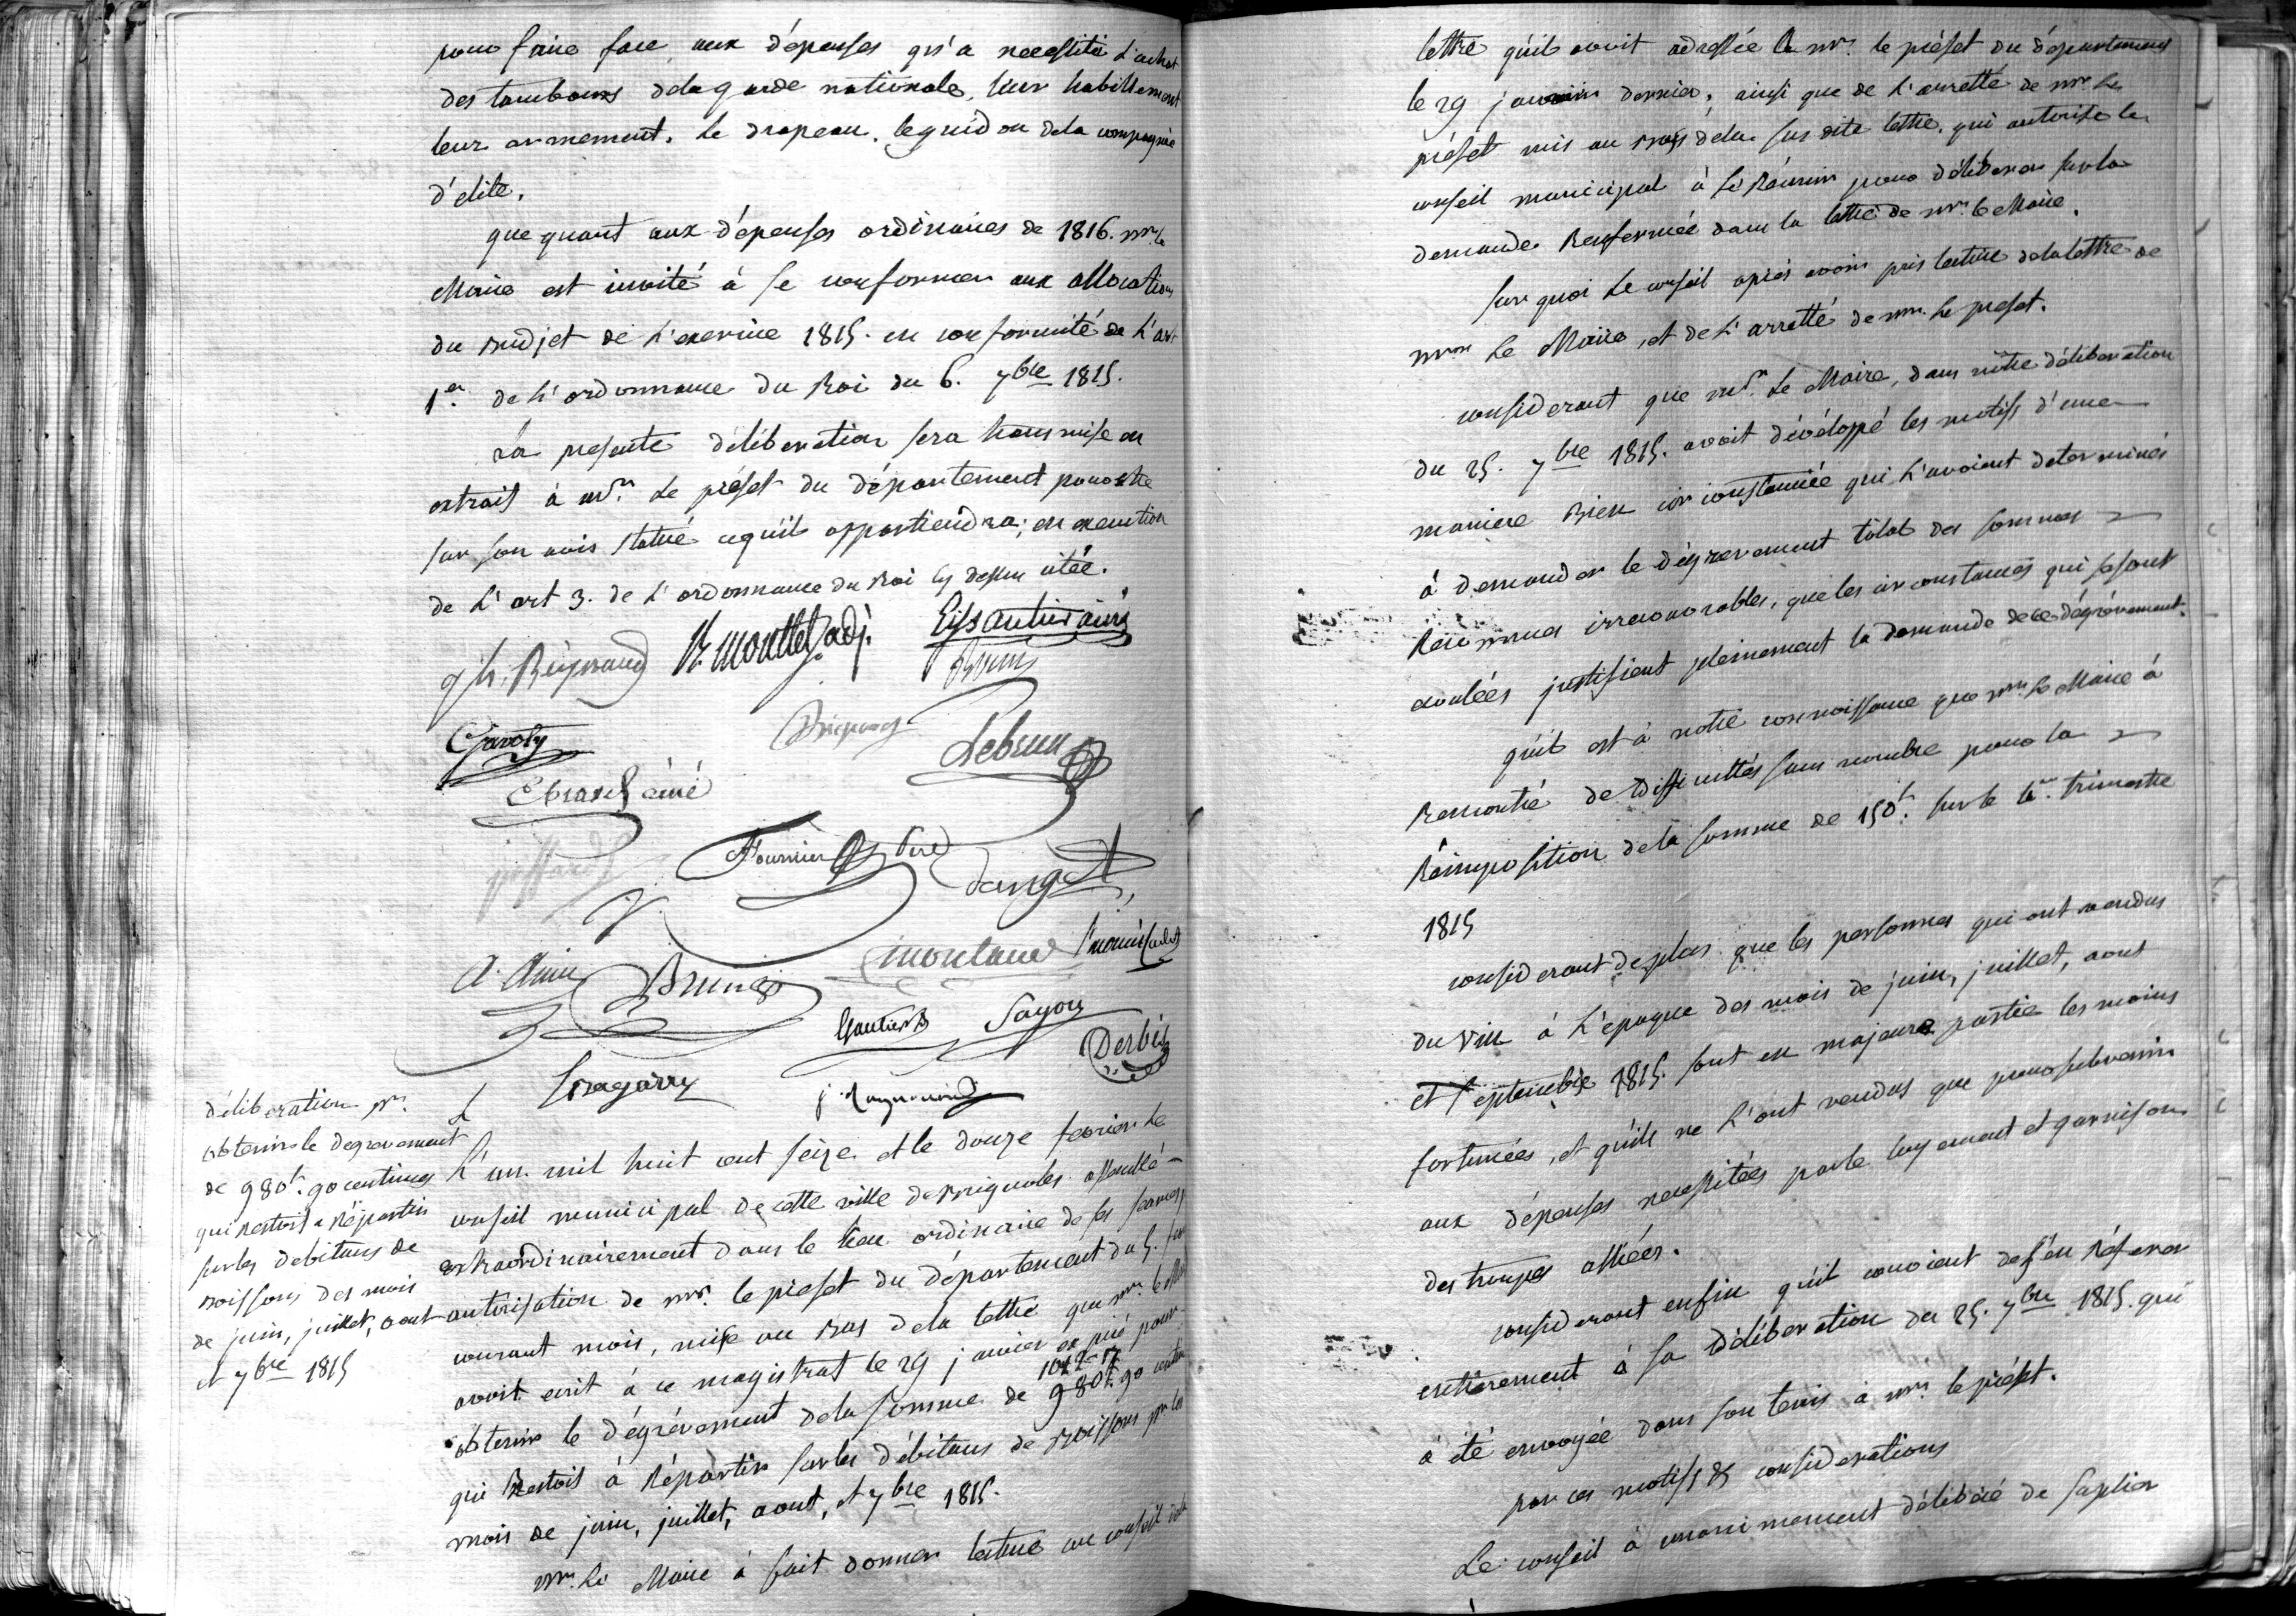 pour faire face aux dépenses qu'a necessité L'achat
des tambours dela garde nationale, leur habillement
leur armement, le drapeau, le guidon dela compagnie
d'élite.
que quant aux dépenses ordinaires de 1816. mr. le
Maire est invité à se conformer aux allocations
du Budjet de L'exercice 1815. en conformité de L'art
1er. de L'ordonnance du Roi du 6. 7bre 1815.
La presente déliberation sera transmise en
extrait à mr. Le préfet du département pour être
sur son avis statué cequ'il appartiendra; en execution
de L'art 3. de L'ordonnance du Roi cy dessus citée.
Reynaud mouttet adj. Eissautier ainé
Brun
Gavoty
Lebrun
ainé
Fournier
danget
Brun
montaud
Gautier Sayou
Derbès
Bagarry
déliberation pr.
obtenir le degrevement
de 980f. 90 centimes
qui restoit a Répartir
sur les debitans de
Boissons des mois
de juin, juillet, aout
et 7bre 1815
L'an mil huit cent seize et le douze fevrier le
conseil municipal de cette ville de Brignoles assemblé
extraordinairement dans le lieu ordinaire de ses séances,
autorisation de mr. le préfet du département du 5. du
courant mois, mise au Bas dela lettre que mr. le Maire
avoit ecrit à ce magistrat le 29 janvier expiré pour
obtenir le dégrévement dela somme de 980f. 90 centimes
qui Restoit à Répartir sur les débitans de Boissons pr. les
mois de juin, juillet, aout, et 7bre 1815.
mr. Le Maire à fait donner lecture au conseil dela
lettre qu'il avoit adressée à mr. le préfet du département
le 29 janvier dernier, ainsi que de L'arretté de mr. le
préfet mis au Bas dela sus dite lettre, qui autorise le
conseil municipal à se Réunir pour déliberer sur la
demande Renfermée dans la lettre de mr. le Maire.
sur quoi Le conseil après avoir pris lecture dela lettre de
mr. Le Maire, et de L'arretté de mr. le prefet.
considerant que mr. Le Maire, dans nôtre déliberation
du 25. 7bre 1815. avoit dévéloppé les motifs d'une
maniere Bien circonstanciée qui L'avoient determinés
à demander le dégrevement total des sommes
Reconnues irrecouvrables, que les circonstances qui se sont
écoulées justifient pleinement la demande de ce dégrévement.
qu'il est à notre connoissance que mr. Le Maire à
Rencontré de difficultés sans nombre pour la
Réimposition dela somme de 150f. sur le 1er. trimestre
1815
considerant deplus que les personnes qui ont vendus
du vin à L'epoque des mois de juin, juillet, aout
et septembre 1815. sont en majeure partie les moins
fortunées, et qu'ils ne L'ont vendus que pour subvenir
aux dépenses necessitées par le logement et garnisons
des troupes alliées.
considerant enfin qu'il convient de s'en Réferer
entièrement à sa déliberation du 25. 7bre 1815. qui
à été envoyée dans son tems à mr. le préfet.
par ces motifs & considerations
Le conseil à unanimement délibéré de suplier